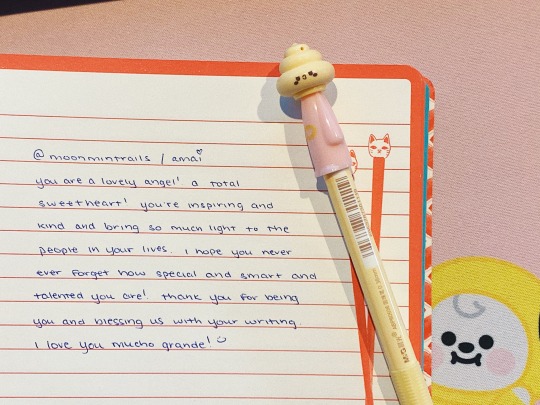 @moonmintrails / amai
you are a lovely angel! a total
sweetheart! you're inspiring and
kind and bring so much light to the
people in your lives. i hope you never
ever forget how special and smart and
talented you are! thank you for being
you and blessing us with your writing.
i love you mucho grande!
M&G